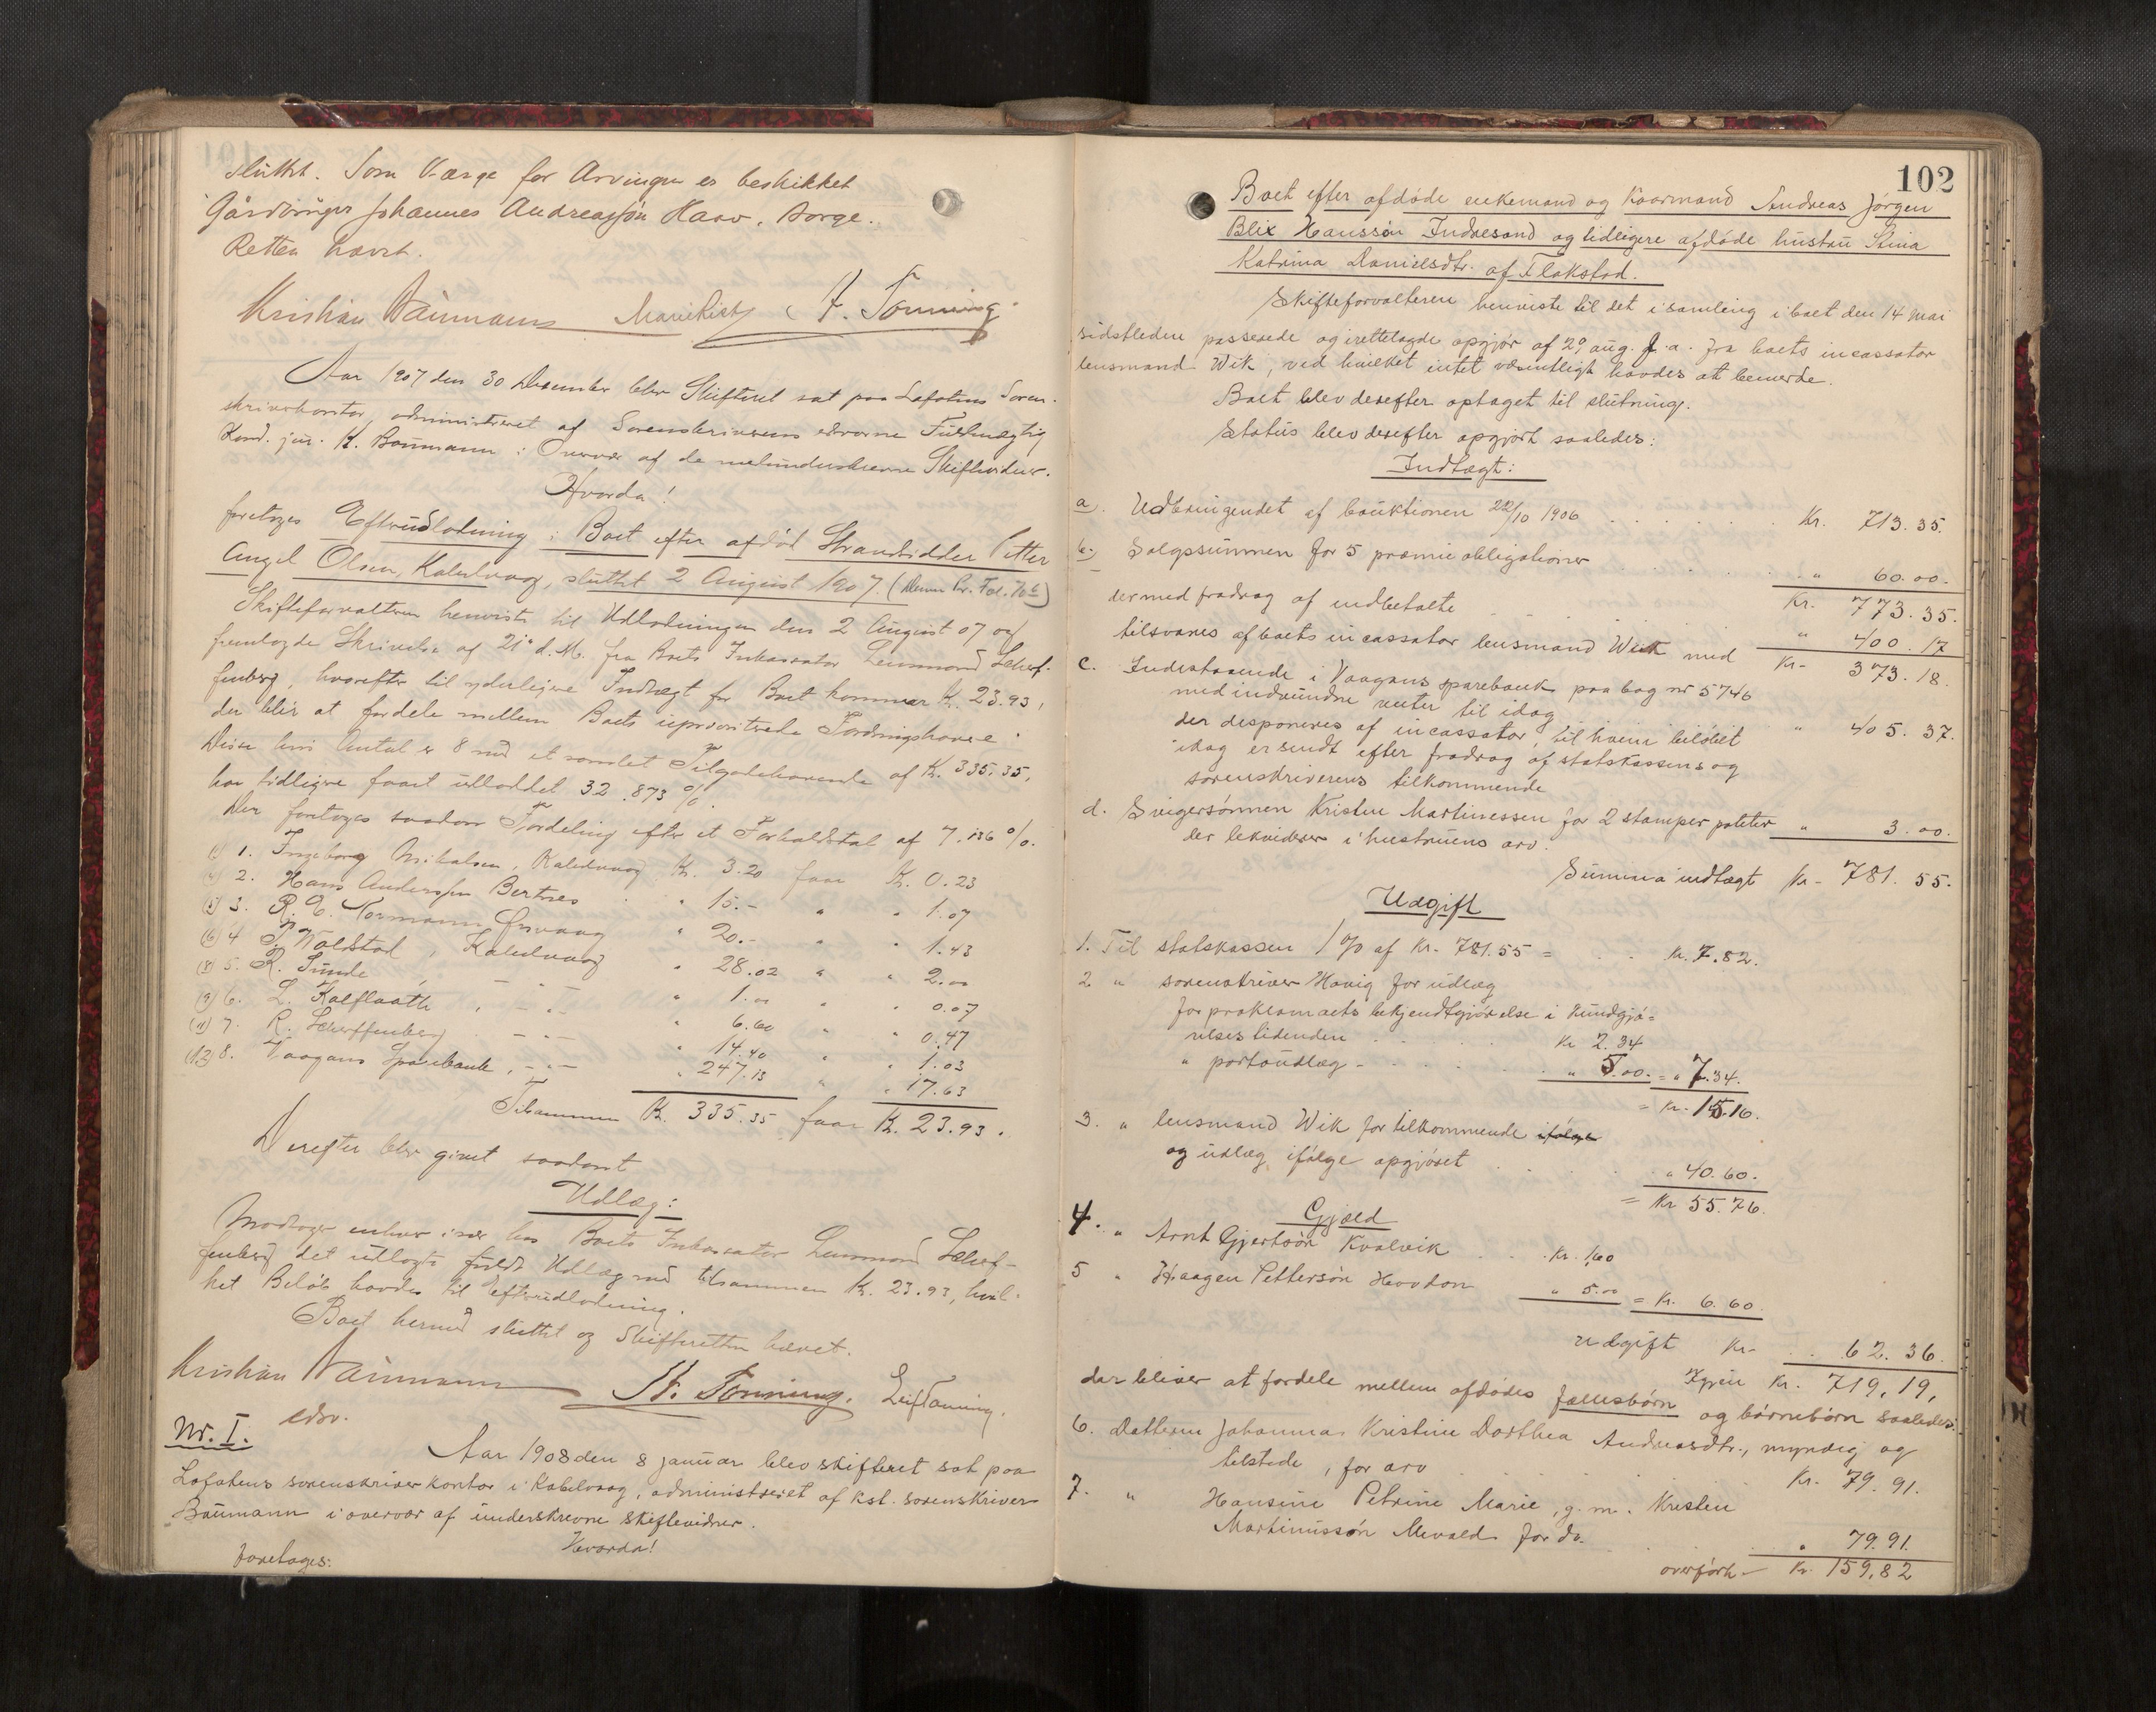 sluttet. Som Værge for Arvingen er beskikket
Gårdbruger Johannes Andreassøn
Retten hævet.
Kristian Baumann Marie Rist A. Tonning
Aar 1907 den 30 December blev Skifteret sat paa Lofotens Soren-
skriverkontor, administreret af Sorenskriverens edsvorne Fuldmægtig
Kand. jur. K. Baumann i Overvær af de medunderskrevne Skiftevidner.
Hvorda!
foretoges Efterudlodning i Boet efter afdød Strandsidder Petter
Angel Olsen, Kabelvaag, sluttet 2 August 1907. (Denne Pr. Fol. 70b)
Skifteforvalteren henviste til Udlodningen den 2 August 07 og
fremlagde Skrivelse af 21de d.M. fra Boets Inkassator Lensmand Scheef-
fenberg, hvorefter til yderligere Indtægt for Boet kommer K. 23.93,
der blir at fordele mellem Boets uprioriterede Fordringshavere.
Disse hvis Antal er 8 med et samlet Tilgodehavende af K. 335.35,
har tidligere faaet udloddet 32.873 %.
Der foretoges saadan Fordeling efter et Forholdstal af 7.136 %.
1. Ingeborg Mikalsen, Kabelvaag K. 3.20 faar K. 0.23
2. Hans Anderssen Bertnes " 15.- " " 1.07
3. R. E. Normann " 20.- " " 1.43
4 Woldstad, Kabelvaag " 28.02 " " 2.00
(8) 5. R. Sunde, - " - " 1.00 " " 0.07
(9) 6. L. Kalflaath, - " - " 6.60 " " 0.47
(11) 7. R. Scheffenberg - " - " 14.40 " " 1.03
(12) 8. Vaagans Sparebank, - " - " 247.13 " " 17.63
Tilsammen K. 335.35 faar K. 23.93.
Derefter blev givet saadant
Udlæg:
Modtager enhver især hos Boets Inkassator Lensmand Scheef-
fenberg det udlagte fuldt Udlæg med tilsammen K. 23.93, hvil-
ket Beløb havdes til Efterudlodning.
Boet hermed sluttet og Skifteretten hævet.
Kristian Baumann A. Tonning. Leif Tonning.
edsv.
Nr. I.
Aar 1908 den 8 januar blev skifteret sat paa
Lofotens sorenskriverkontor i Kabelvaag, administreret af kst. sorenskriver
Baumann i overvær af underskrevne skiftevidner.
Hvorda!
foretages:
102
Boet efter afdøde enkemand og kaarmand Andreas Jørgen
Blix Hanssøn Indresand og tidligere afdøde hustru Stina
Katrina Danielsdtr. af Flakstad.
Skifteforvalteren henviste til det i samling i boet den 14 mai
sidstleden passerede og irettelagde opgjør af 29 aug. f.a. fra boets incassator
lensmand Wik, ved hvilket intet væsentligt havdes at bemerke.
Boet blev derefter optaget til slutning.
Status blev derefter opgjort saaledes:
Indtægt:
a. Udbringendet af bauktionen 22/10 1906 . . . . . . Kr. 713.35.
b. Salgssummen for 5 præmieobligationer . . . . . " 60.00.
Kr. 773.35.
dermed fradrag af indbetalte . . " 400.17
tilsvares af boets incassator lensmand Wik med Kr- 373.18.
c. Indestaaende i Vaagans sparebank paa bog nr 5746
med indvundne renter til idag " 405.37.
der disponeres af incassator, til hvem beløbet
idag er sendt efter fradrag af statskassens og
sorenskriverens tilkommende
d. Svigersønnen Kristen Martinessen for 2 stamper poteter " 3.00.
der likvideres i hustruens arv.
Summa indtægt Kr- 781.55.
Udgift
1. Til statskassen 1 % af Kr. 781.55 = . . Kr. 7.82.
2 " sorenskriver Havig for udlæg
for proklamaets bekjendtgjørelse i Kundgjø=
relsestidenden . . . . Kr 2.34
" portoudlæg - . . . . " 5.00. = " 7.34.
= Kr. 15.16.
3. " lensmand Wik for tilkommende ifølge
og udlæg, ifølge opgjøret . . . . . " 40.60.
= Kr 55.76.
Gjæld
4. " Arnt Gjertsøn Kvalvik . . Kr. 1.60
5 " Haagen Pettersøn " 5.00 = Kr. 6.60.
udgift Kr- . . 62.36.
Igjen Kr. 719,19,
der bliver at fordele mellem afdødes fællesbørn og børnebørn saaledes:
6. Datteren Johanna Kristine Dorthea Andreasdtr., myndig og
tilstede, for arv . . . . Kr. 79.91.
7. " Hansine Petrine Marie, g.m. Kristen
Martinussøn for do. . . . " 79.91.
overført - Kr. 159,82